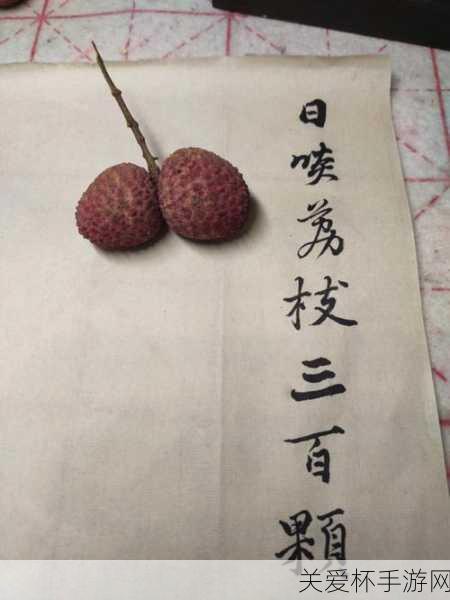 日啖荔枝三百顆
关爱杯手游网